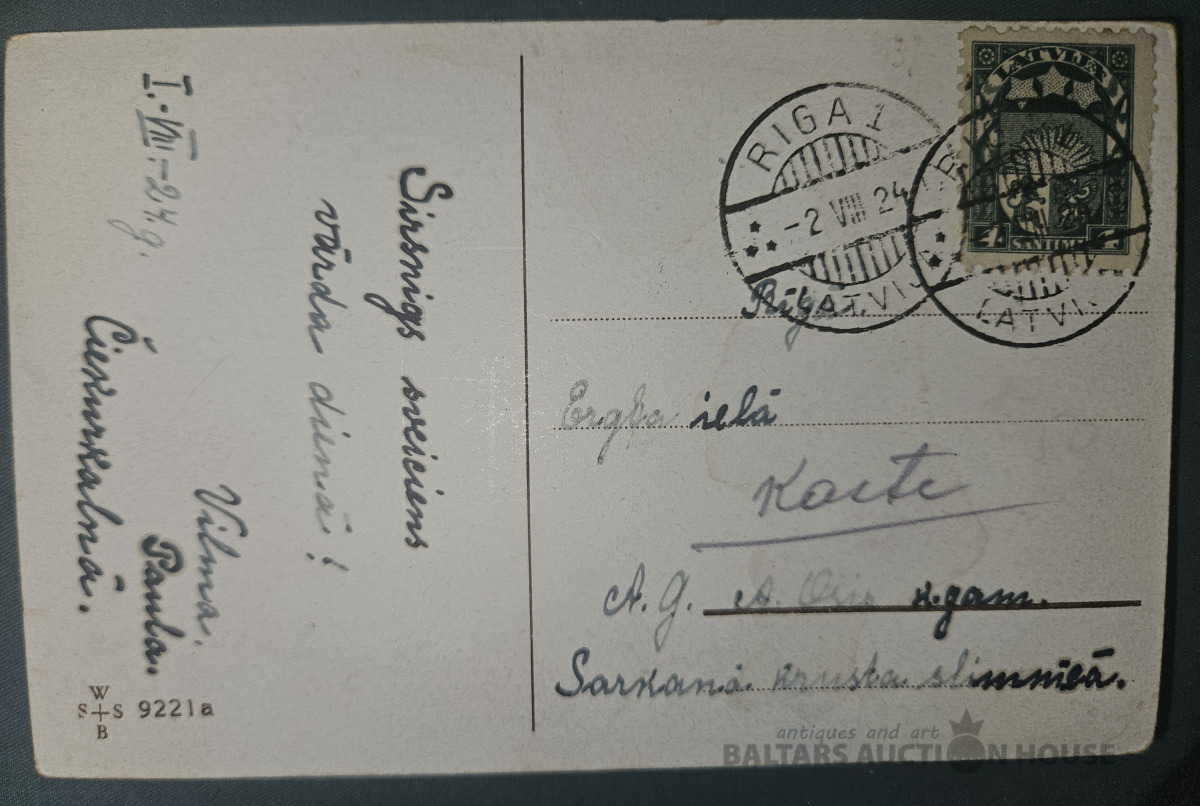 I.-VIII.-24g.
Sirsnigs sveiciens
vārda dienā!
Vilma.
Paula.
Čiekurkalnā.
W
S S
B
9221a
LATVIJA
4 SANTIMI 4
RIGA 1
-2 VIII 24
LATVIJA
RIGA
LATVIJA
Rīgā.
ielā
Karte
A. G. A. k.gam.
Sarkanā krusta slimnīcā.
antiques and art
BALTARS AUCTION HOUSE